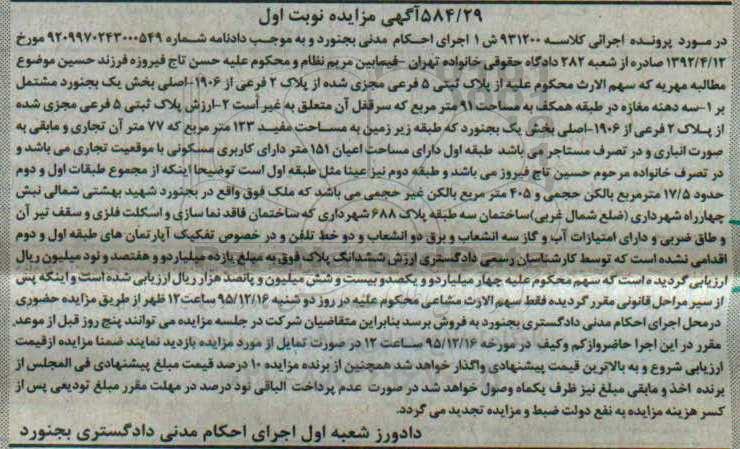 ۵۸۴/۲۹آگهی مزایده نوبت اول
در مورد پرونده اجرائی کلاسه ۹۳۱۲۰۰ ش ۱ اجرای احکام مدنی بجنورد و به موجب دادنامه شماره ۹۲۰۹۹۷۰۲۴۳۰۰۰۵۴۹ مورخ
۱۳۹۲/۴/۱۲ صادره از شعبه ۲۸۲ دادگاه حقوقی خانواده تهران -فیمابین مریم نظام و محکوم علیه حسن تاج فیروزه فرزند حسین موضوع
مطالبه مهریه که سهم الارث محکوم علیه از پلاک ثبتی ۵ فرعی مجزی شده از پلاک ۲ فرعی از ۱۹۰۶-اصلی بخش یک بجنورد مشتمل
بر ۱-سه دهنه مغازه در طبقه همکف به مساحت ۹۱ متر مربع که سرقفل آن متعلق به غیر است ۲-ارزش پلاک ثبتی ۵ فرعی مجزی شده
از پلاک ۲ فرعی از ۱۹۰۶-اصلی بخش یک بجنورد که طبقه زیر زمین به مساحت مفید ۱۲۳ متر مربع که ۷۷ متر آن تجاری و مابقی به
صورت انباری و در تصرف مستاجر می باشد طبقه اول دارای مساحت اعیان ۱۵۱ متر دارای کاربری مسکونی با موقعیت تجاری می باشد و
در تصرف خانواده مرحوم حسین تاج فیروز می باشد و طبقه دوم نیز عینا مثل طبقه اول است توضیحا اینکه از مجموع طبقات اول و دوم
حدود ۱۷/۵ مترمربع بالکن حجمی و ۴۰۵ متر مربع بالکن غیر حجمی می باشد که ملک فوق واقع در بجنورد شهید بهشتی شمالی نبش
چهارراه شهرداری (ضلع شمال غربی)ساختمان سه طبقه پلاک ۶۸۸ شهرداری که ساختمان فاقد نما سازی و اسکلت فلزی و سقف تیر آن
و طاق ضربی و دارای امتیازات آب و گاز سه انشعاب و برق دو انشعاب و دو خط تلفن و در خصوص تفکیک آپارتمان های طبقه اول و دوم
اقدامی نشده است که توسط کارشناسان رسمی دادگستری ارزش ششدانگ پلاک فوق به مبلغ یازده میلیارد و هفتصد و نود میلیون ریال
ارزیابی گردیده است که سهم محکوم علیه چهار میلیارد و یکصدو بیست و شش میلیون و پانصد هزار ریال ارزیابی شده است و اینکه پس
از سیر مراحل قانونی مقرر گردیده فقط سهم الارث مشاعی محکوم علیه در روز دو شنبه ۹۵/۱۲/۱۶ ساعت ۱۲ ظهر از طریق مزایده حضوری
در محل اجرای احکام مدنی دادگستری بجنورد به فروش برسد بنابراین متقاضیان شرکت در جلسه مزایده می توانند پنج روز قبل از موعد
مقرر در این اجرا حاضر وازکم وکیف در مورخه ۹۵/۱۲/۱۶ ساعت ۱۲ در صورت تمایل از مورد مزایده بازدید نمایند ضمنا مزایده ازقیمت
ارزیابی شروع و به بالاترین قیمت پیشنهادی واگذار خواهد شد همچنین از برنده مزایده ۱۰ درصد قیمت مبلغ پیشنهادی فی المجلس از
برنده اخذ و مابقی مبلغ نیز ظرف یکماه وصول خواهد شد در صورت عدم پرداخت الباقی نود درصد در مهلت مقرر مبلغ تودیعی پس از
کسر هزینه مزایده به نفع دولت ضبط و مزایده تجدید می گردد.
دادورز شعبه اول اجرای احکام مدنی دادگستری بجنورد